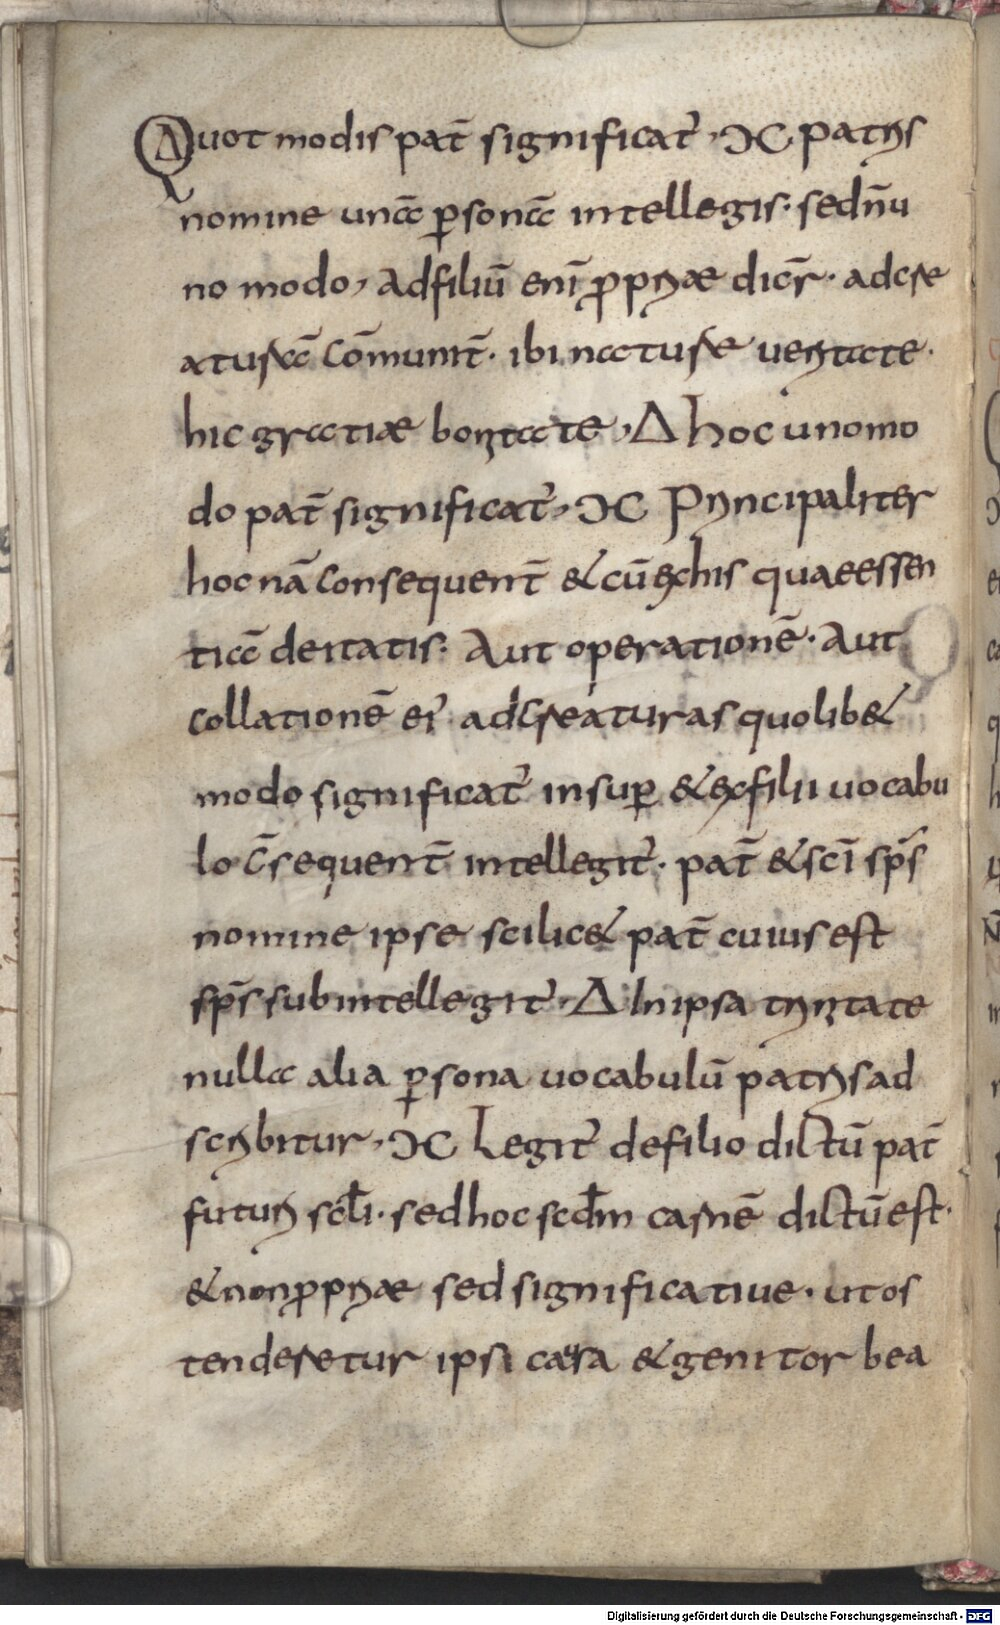 Quot modis pat̄ significat̉, ƆC patris
nomine una p̱sona intellegis· sed n̄ u
no modo, Ad filiū enī ꝓpriae dic̄r· ad cre
aturā cōmunit̄· ibi naturae ueritate·
hic gratiae bonitate, Δ hoc uno mo
do pat̄ significat̉, ƆC Principaliter
hoc nā consequent̄ & cū ex his quae essen
tiā deitatis· Aut operationē· Aut
collationē ei᾿ ad creaturas quolib&
modo significat̉ insuꝑ & ex filii uocabu
lo c̄sequent̄ intellegit̉· pat̄ & sc̄i sp̄s
nomine ipse scilic& pat̄ cuius est
sp̄s subintellegit̉, Δ In ipsa trinitate
nulla alia ꝑsona uocabulū patris ad
scribitur, ƆC Legit̉ de filio dictū pat̄
futuri sc̄li· sed hoc scd̄m carnē dictū est·
& non ꝓpriae sed significatiue· ut os
tenderetur ipsi causa & genitor bea
Digitalisierung gefördert durch die Deutsche Forschungsgemeinschaft - DFG